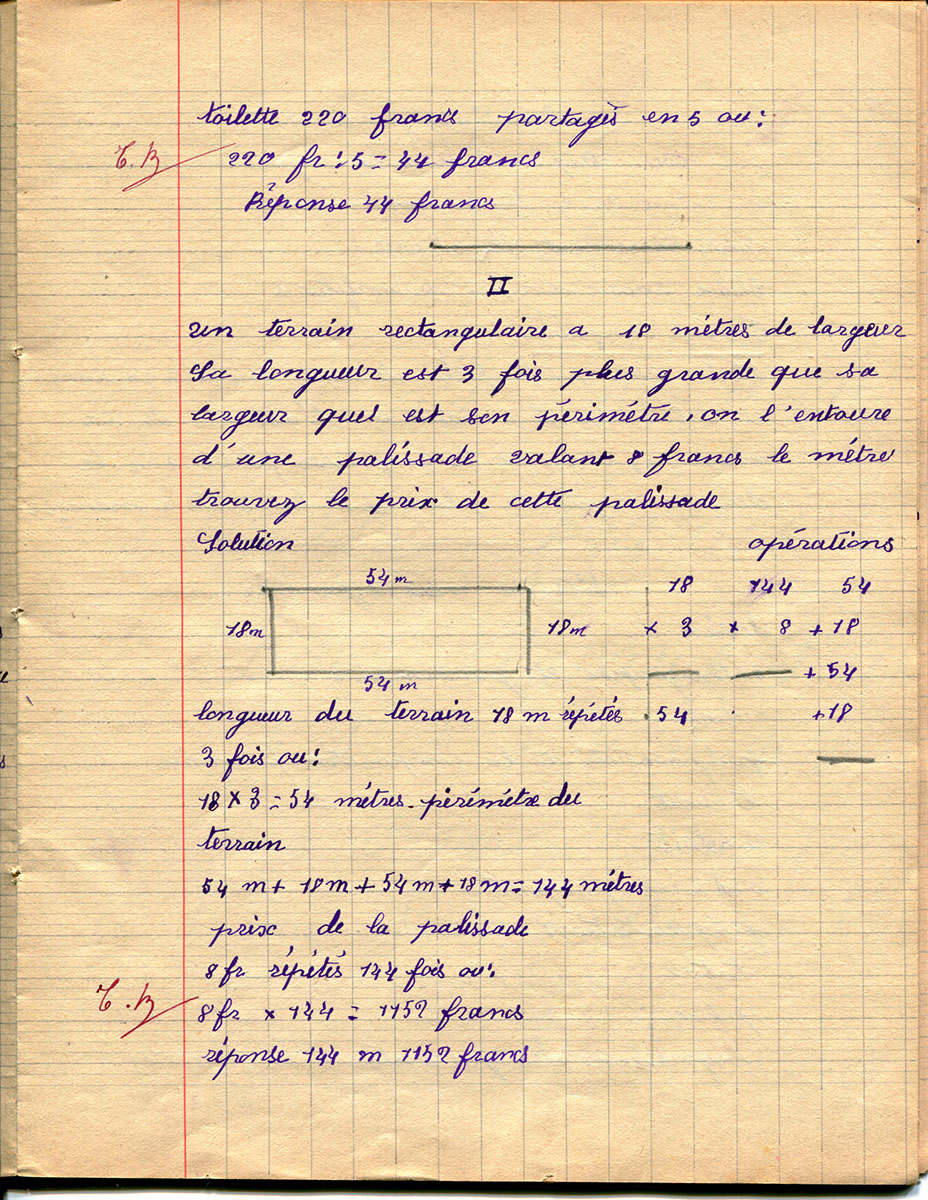 toilette 220 francs partagés en 5 ou:
T.B
220 fr : 5 = 44 francs
Réponse 44 francs
II
un terrain rectangulaire a 18 métres de largeur
Sa longueur est 3 fois plus grande que sa
largeur quel est son périmétre, on l'entoure
d'une palissade valant 8 francs le métre
trouvez le prix de cette palissade
Solution opérations
54 m
18m 18m
54 m
18 144 54
× 3 × 8 + 18
+ 54
54 +18
longueur du terrain 18 m répétés
3 fois ou:
18 × 3 = 54 métres. périmétre du
terrain
54 m + 18m + 54m + 18m = 144 métres
prix de la palissade
8 fr répétés 144 fois ou:
T.B
8 fr × 144 = 1152 francs
réponse 144 m 1152 francs